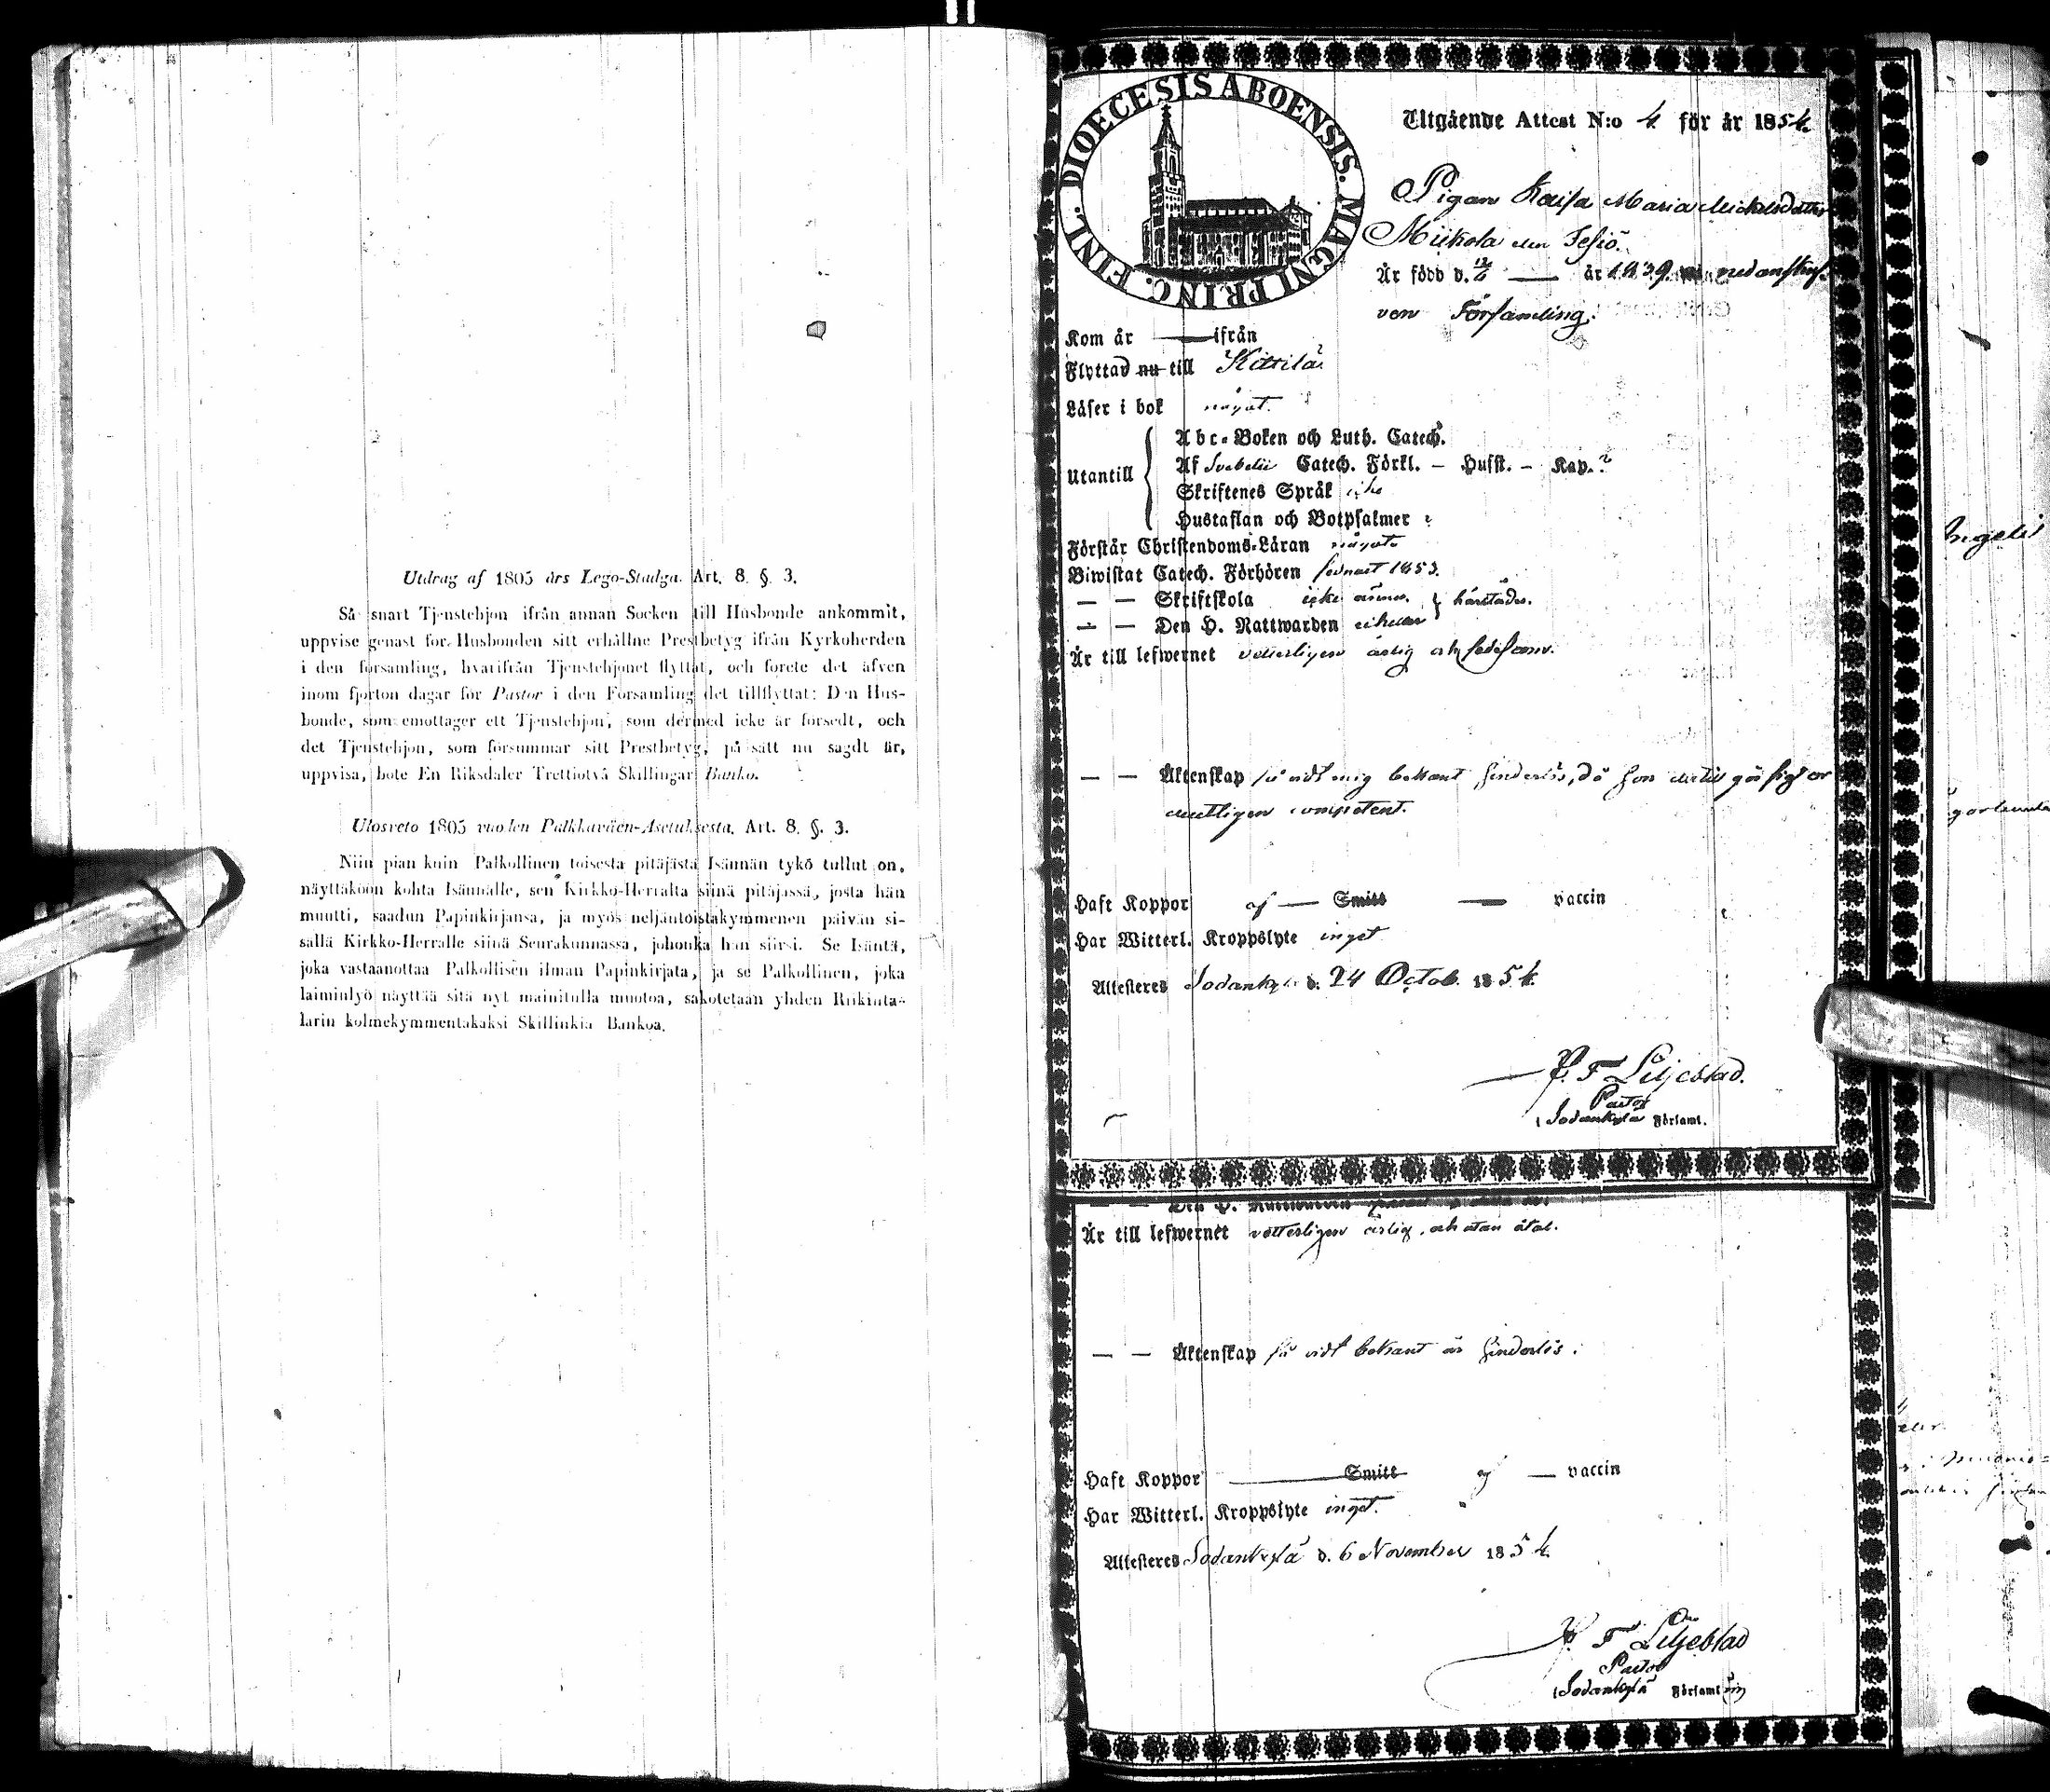 Utdrag af 1805 års Lego-Stadga. Art. 8. §. 3.
Så snart Tjenstehjon ifrån annan Socken till Husbonde ankommit,
uppvise genast för Husbonden sitt erhållne Prestbetyg ifrån Kyrkoherden
i den församling, hvarifrån Tjenstehjonet flyttat, och förete det äfven
inom fjorton dagar för Pastor i den Församling det tillflyttat: Den Hus-
bonde, som emottager ett Tjenstehjon, som dermed icke är försedt, och
det Tjenstehjon, som försummar sitt Prestbetyg, på sätt nu sagdt är,
uppvisa, böte En Riksdaler Trettiotvå Skillingar Banko.
Ulosveto 1805 vuoden Palkkaväen-Asetuksesta. Art. 8. §. 3.
Niin pian kuin Palkollinen toisesta pitäjästä Isännän tykö tullut on,
näyttäköön kohta Isännälle, sen Kirkko-Herralta siinä pitäjässä, josta hän
muutti, saadun Papinkirjansa, ja myös neljäntoistakymmenen päivän si-
sällä Kirkko-Herralle siinä Seurakunnassa, johonka hän siirsi. Se Isäntä,
joka vastaanottaa Palkollisen ilman Papinkirjata, ja se Palkollinen, joka
laiminlyö näyttää sitä nyt mainitulla muotoa, sakotetaan yhden Riikinta-
larin kolmekymmentäkaksi Skillinkiä Bankoa.
DIOECESIS ABOENSIS. MAGNI PRINC. FINL.
Utgående Attest N:o 4. för år 1854.
Pigan Kaisa Maria Michelsdotter
Miikola Jesiö.
Är född d. år 1839. nedanskrif-
ven Församling.
Kom år — ifrån
Flyttad nu till Kittilä.
Läser i bok något.
Utantill
Abc-Boken och Luth. Catech.
Af Svebelii Catech. Förkl. – Husst. – Kap.
Skriftenes Språk icke
Hustaflan och Botpsalmer
Förstår Christendoms-Läran något
Biwistat Catech. Förhören sednast 1853.
— — Skriftskola icke ännu. härstädes.
— — Den H. Nattwarden ej heller
Är till lefwernet vetterligen ärlig och sedesam.
— — Äktenskap så vidt mig bekant hinderlös, då hon dertill
competent.
Haft Koppor af — Smitt — vaccin
Har Witterl. Kroppslyte inget
Attesteres Sodankylä d. 24 Octob. 1854.
P. F. Liljeblad.
Pastor
i Sodankylä Församl.
— — Den H. Nattwarden
Är till lefwernet vetterligen ärlig, och utan åtal.
— — Äktenskap så vidt bekant är hinderlös.
Haft Koppor — Smitt af — vaccin
Har Witterl. Kroppslyte inget.
Attesteres Sodankylä d. 6 November 1854.
P. F. Liljeblad
Pastor
i Sodankylä Församl